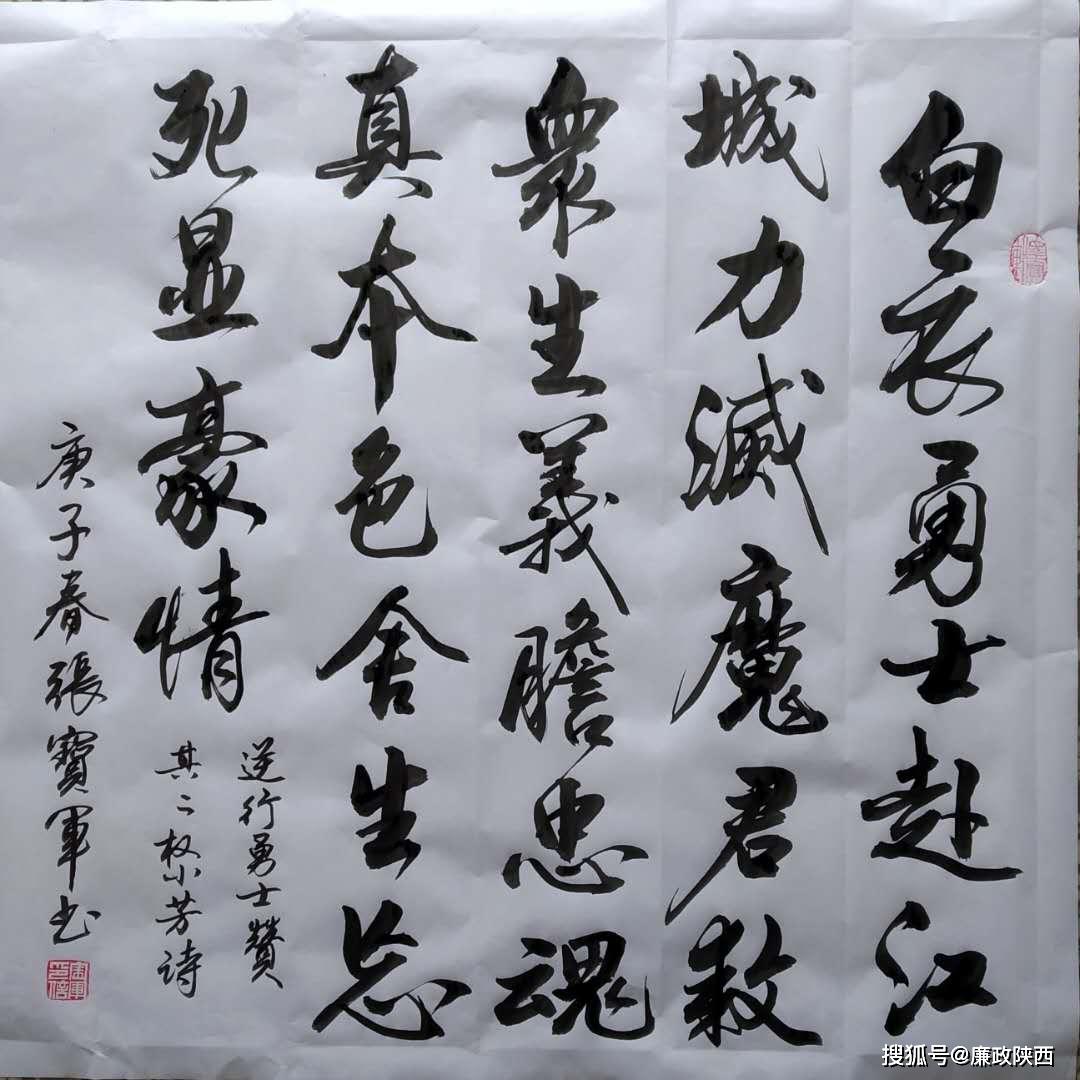 白衣勇士赴江
城力滅魔君救
衆生義膽忠魂
真本色舍生忘
死显豪情
逆行勇士赞
其二 小芳诗
庚子春張寶軍书
搜狐号@廉政陕西